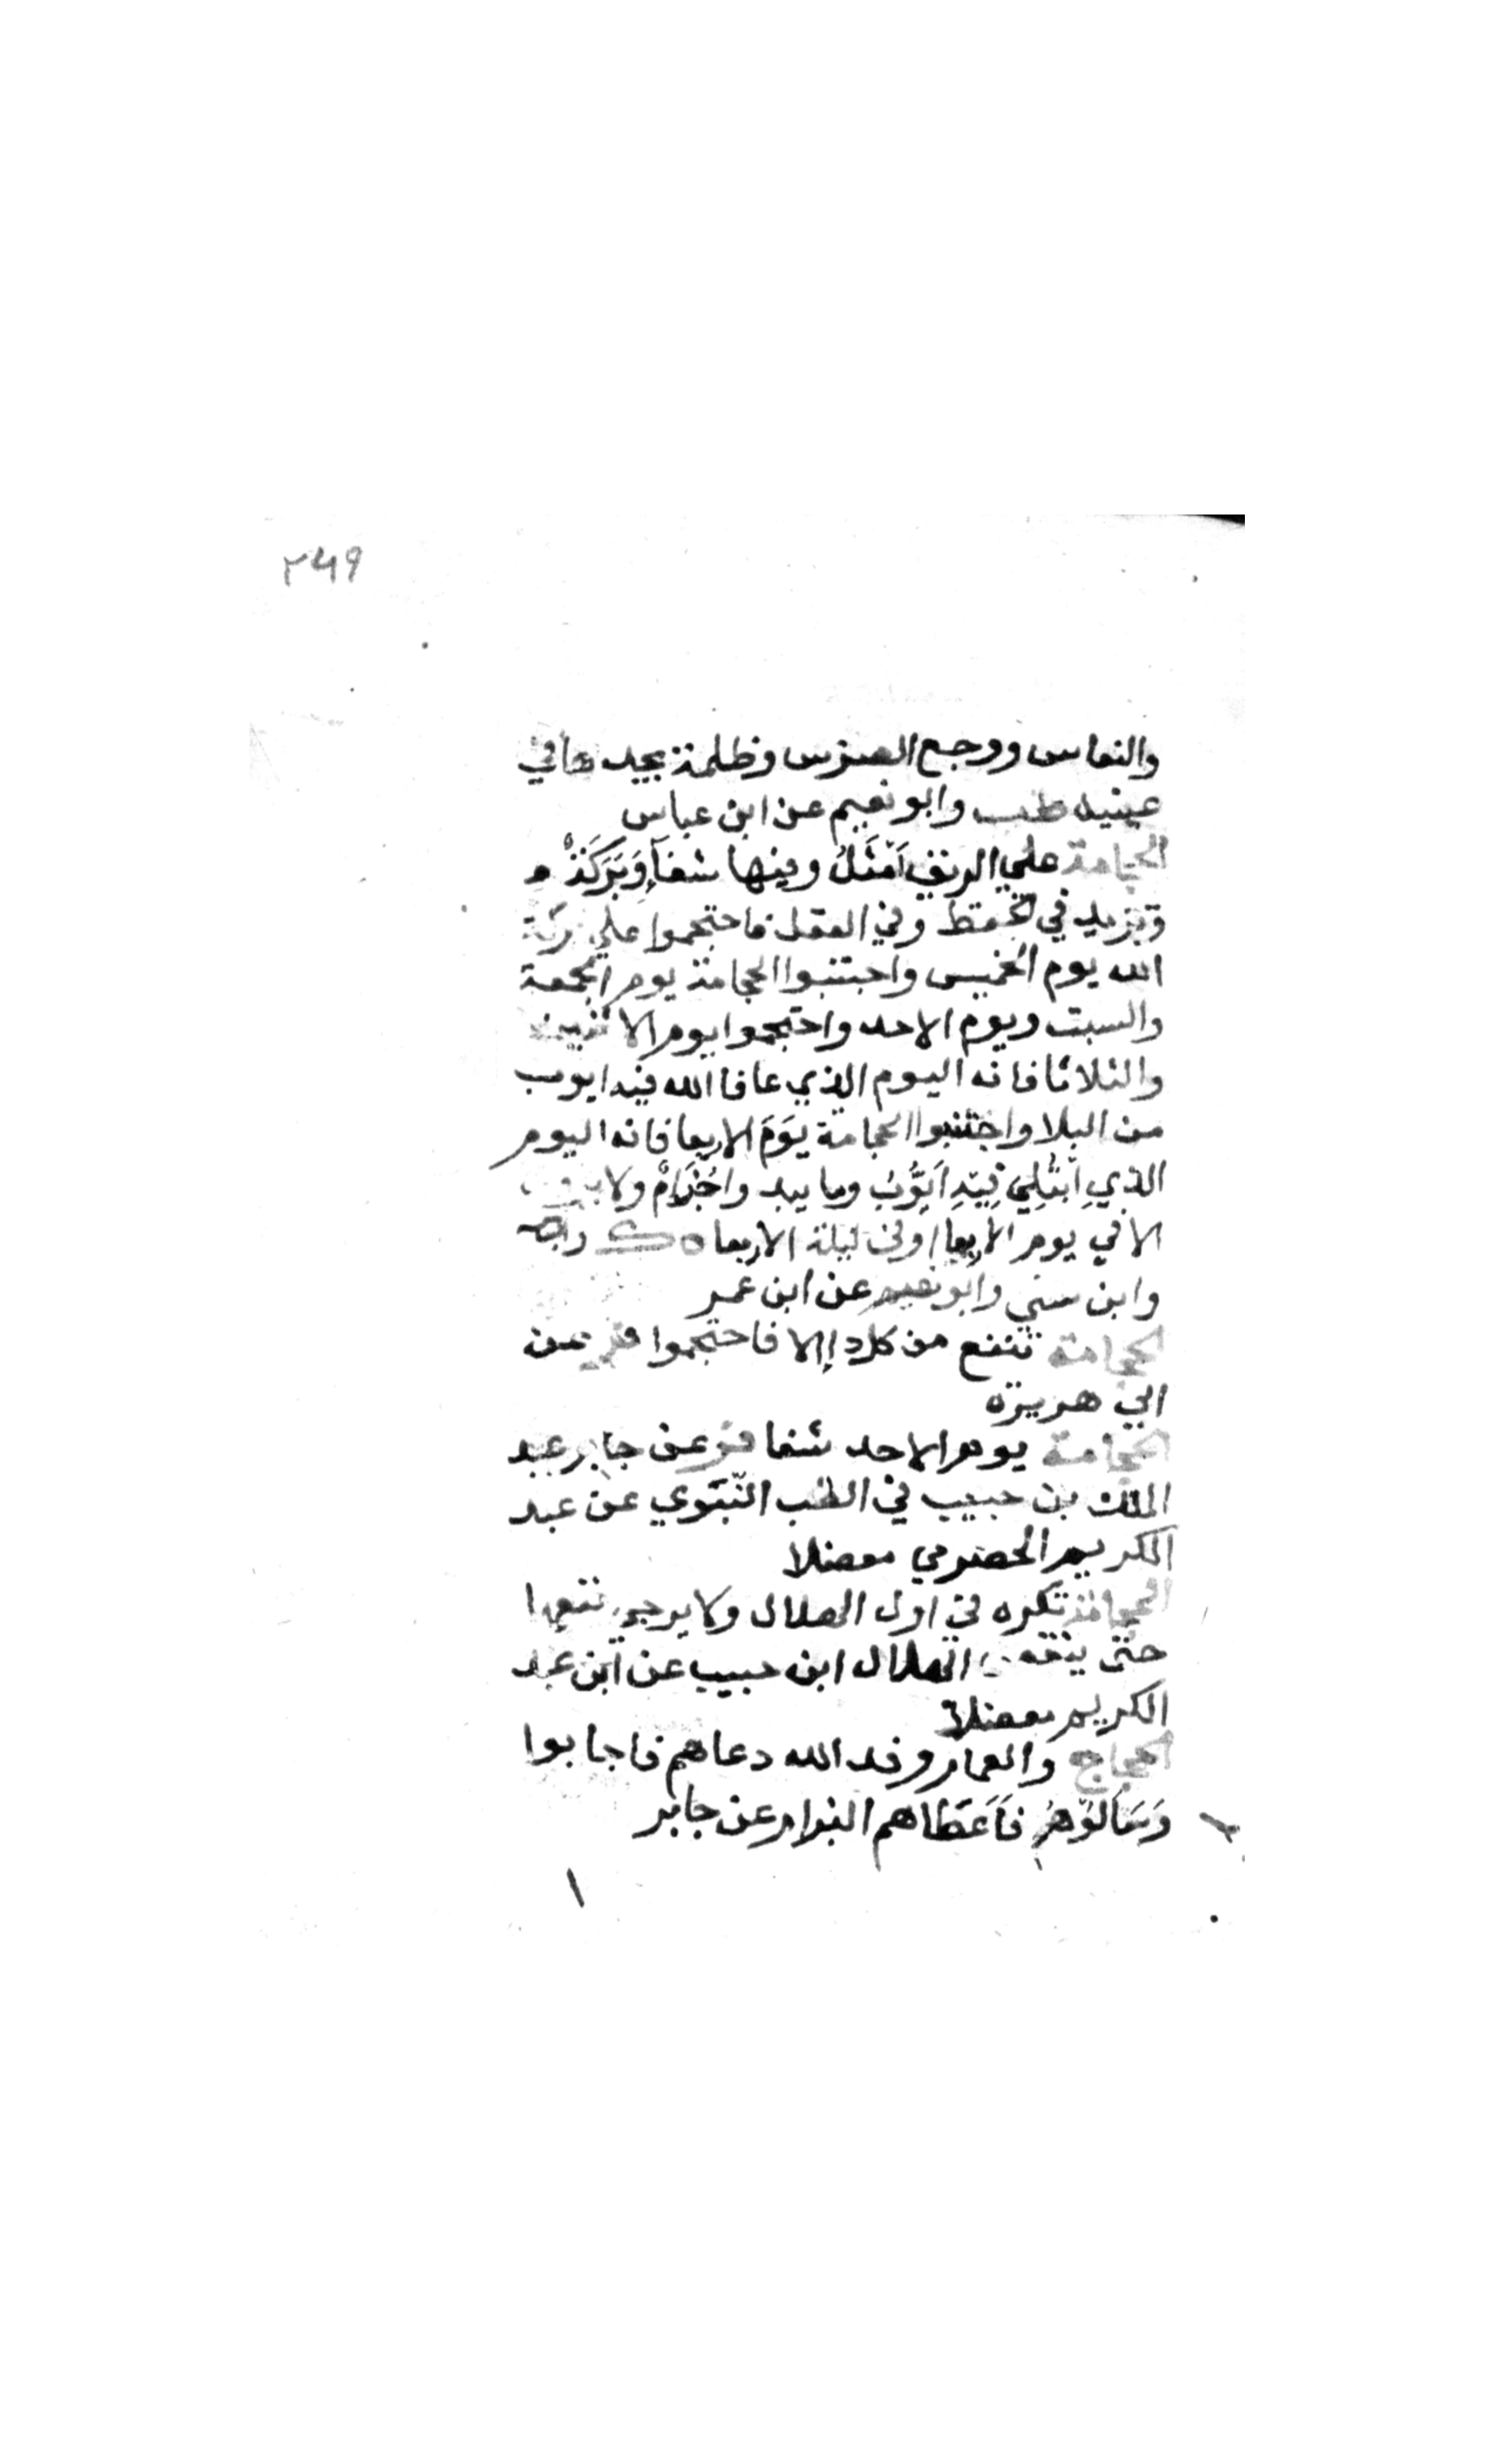 ٢٤٩
والنعاس ووجع الضرس وظلمة يجدها في
عينيه طب وابو نعيم عن ابن عباس
الحجامة علي الريق اَمْثَلُ وفيها شفآ وَبَرَكَةْ
وتزيد في الحفظ وفي العقل فاحتجموا علي بركة
الله يوم الخميس واجتنبوا الحجامة يوم الجمعة
والسبت ويوم الاحد واحتجموا يوم الاثنين
والثلاثا فانه اليوم الذي عافا الله فيه ايوب
من البلا واجتنبوا الحجامة يَوَمَ الاربعا فانه اليوم
الذيِ ابْتُلِيَ فِيَهِ اَيَوُّبُ وما يبد واجُذَامٌ ولا
الا في يوم الاربعا اوفي ليلة الاربعا ه ك
وابن سني وابو نعيم عن ابن عمر
الحجامة تنفع من كل دا الا فاحتجموا فر عن
ابي هريرة
الحجامة يوم الاحد شفا فر عن جابر عبد
الملك بن حبيب في الطب النّبَوي عن عبد
الكريم الحضرمي معضلا
الحجامة تكره في اول الهلال ولا يرجو نفعها
حتى ينقص الهلال ابن حبيب عن ابن عبد
الكريم معضلا
الحجاج والعمار وفد الله دعاهم فاجابوا
وَسَالوُهُ فَاَعَطَاهم البزار عن جابر